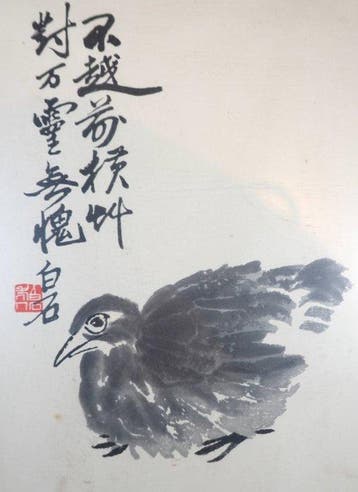 不越前横艸
對万靈無愧
白石